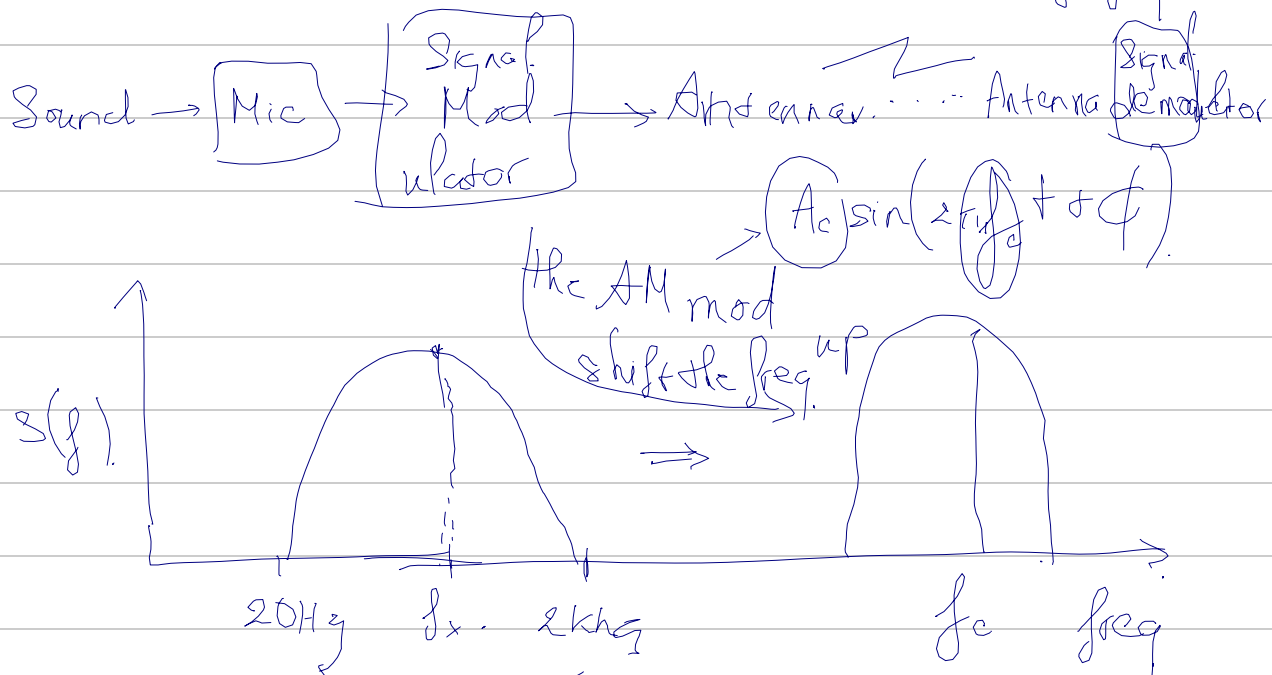 Sound → Mic → Signal Modulator → Antenna ..... Antenna Signal demodulator
A_c sin(2πf_c t + φ)
the AM mod
shift the freq up
S(f)
20Hz f_x 2khz f_c freq